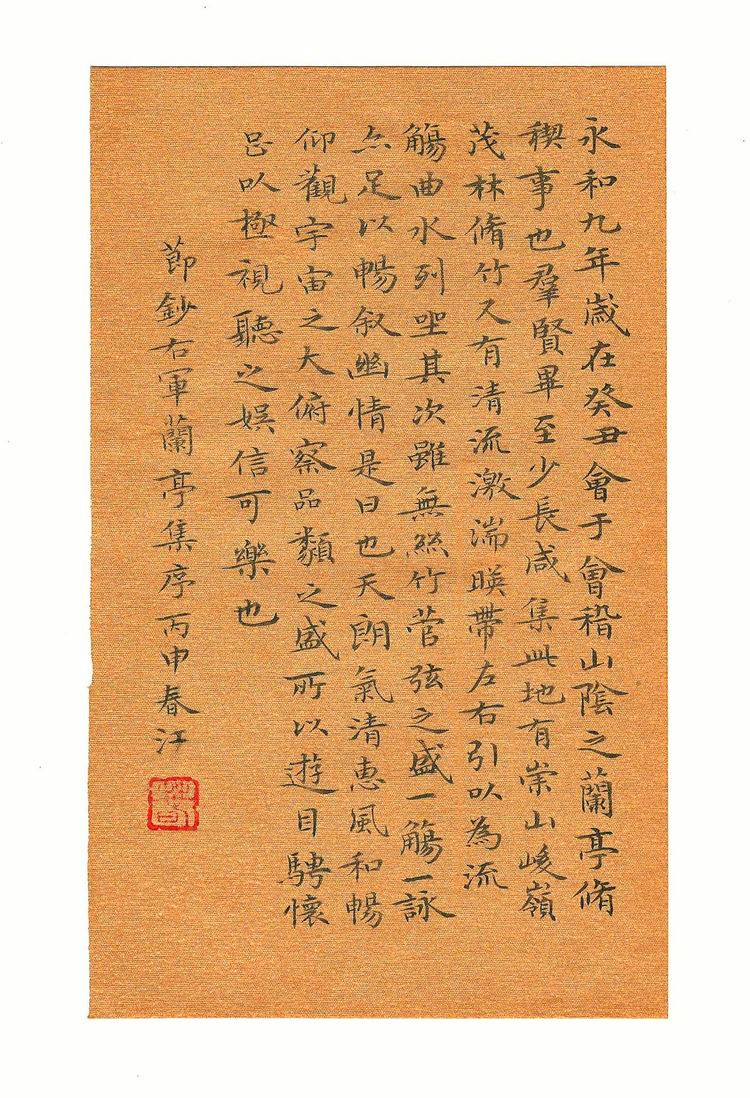 永和九年歲在癸丑會于會稽山陰之蘭亭脩
稧事也羣賢畢至少長咸集此地有崇山峻嶺
茂林脩竹又有清流激湍暎帶左右引以為流
觴曲水列坐其次雖無絲竹菅弦之盛一觴一詠
亦足以暢叙幽情是日也天朗氣清惠風和暢
仰觀宇宙之大俯察品類之盛所以遊目騁懷
足以極視聽之娛信可樂也
節鈔右軍蘭亭集序丙申春江